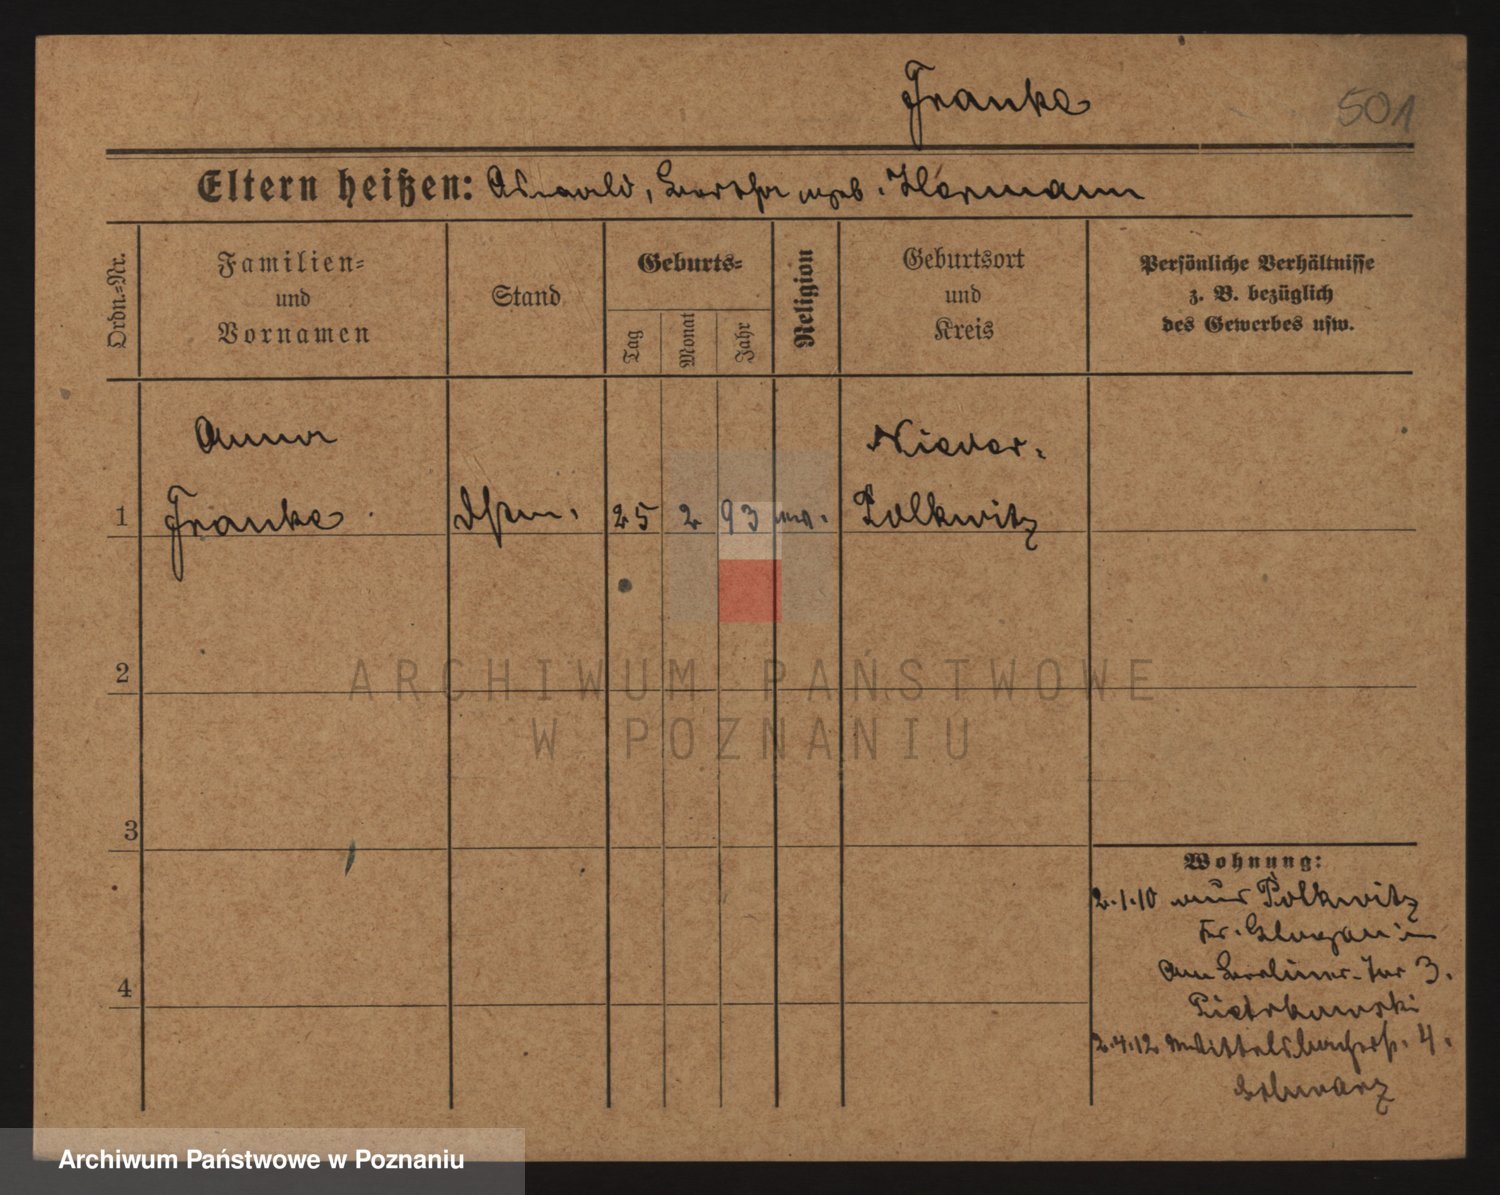 Franke
501
Eltern heißen: Oswald, Bertha geb. Hermann
Ordn.-Nr.
Familien-
und
Vornamen
Stand
Geburts-
Tag
Monat
Jahr
Religion
Geburtsort
und
Kreis
Persönliche Verhältnisse
z. B. bezüglich
des Gewerbes usw.
Anna
Nieder-
1
Franke
25 2 93
Polkwitz
2
ARCHIWUM PAŃSTWOWE
W POZNANIU
3
Wohnung:
2.1.10 aus Polkwitz
Kr. Glogau in
Am Berliner-Tor 3.
4
Pietrkowski
2.4.12 Wittelsbacherstr. 4.
Schwarz
Archiwum Państwowe w Poznaniu